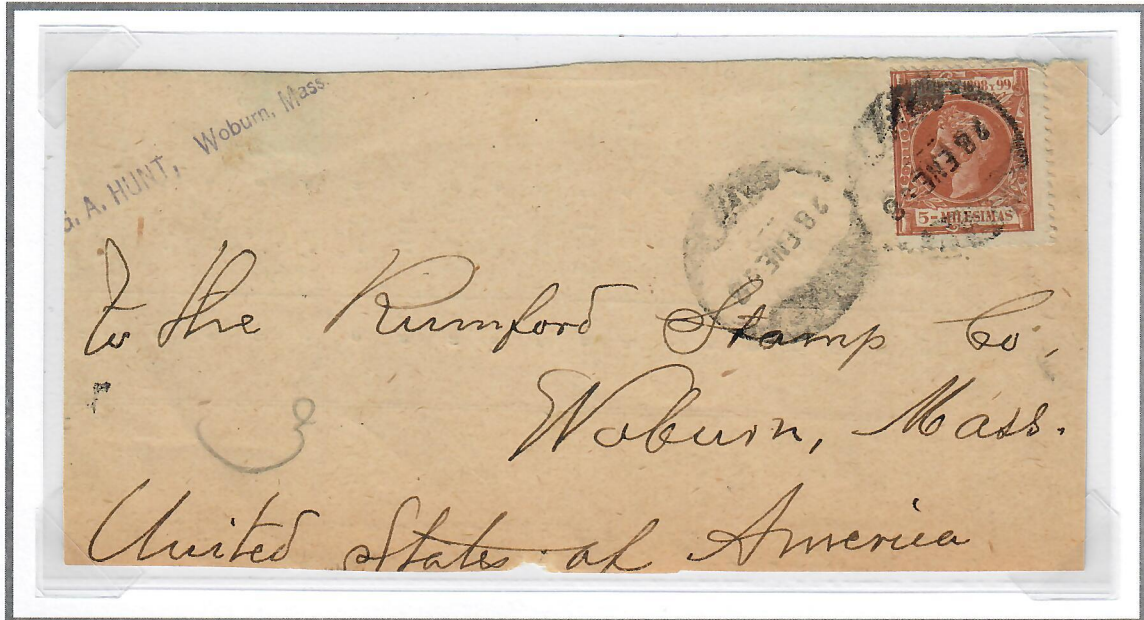 G. A. HUNT, Woburn, Mass.
1898 Y 99
28 ENE 98
5-MILESIMAS
28 ENE 98
To the Rumford Stamp Co.,
Woburn, Mass.
United States of America